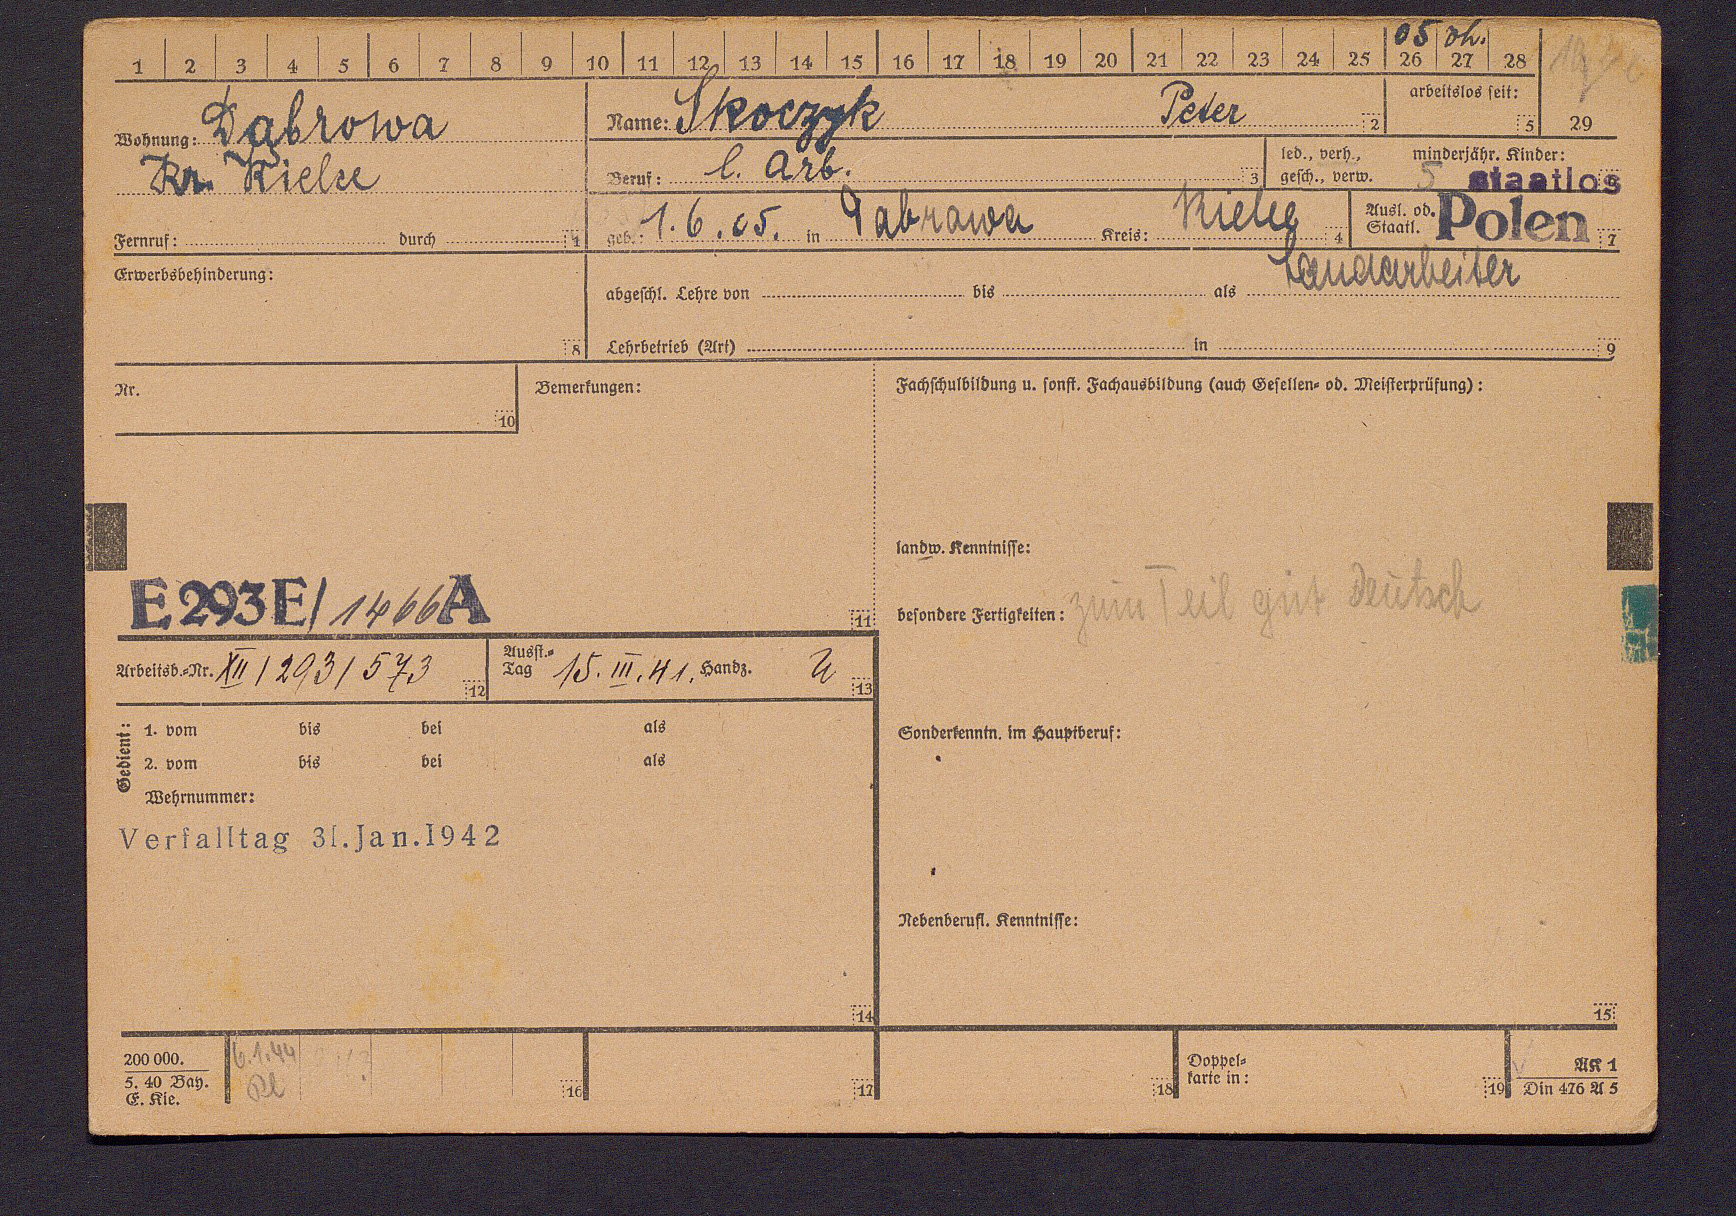 05 oh.
1 2 3 4 5 6 7 8 9 10 11 12 13 14 15 16 17 18 19 20 21 22 23 24 25 26 27 28
Wohnung: Dąbrowa
Kr. Kielce
Fernruf: durch 1
Name: Skoczyk Peter 2
arbeitslos seit: 5
29
Beruf: l. Arb. 3
led., verh., gesch., verw.
minderjähr. Kinder: 5
staatlos
geb.: 1.6.05. in Dabrawa Kreis: Kielce 4
Ausl. od. Staatl. Polen 7
Erwerbsbehinderung:
8
Landarbeiter
abgeschl. Lehre von bis als
Lehrbetrieb (Art) in 9
Nr.
10
Bemerkungen:
E 293 E/ 1466 A
11
Fachschulbildung u. sonst. Fachausbildung (auch Gesellen- od. Meisterprüfung):
landw. Kenntnisse:
besondere Fertigkeiten: zum Teil gut Deutsch
Arbeitsb.-Nr. XII/293/573 12
Ausst.-Tag 15.III.41. Handz. 13
Gedient:
1. vom bis bei als
2. vom bis bei als
Wehrnummer:
Verfalltag 31.Jan.1942
14
Sonderkenntn. im Hauptberuf:
Nebenberufl. Kenntnisse:
15
200 000.
5. 40 Bay.
E. Kie.
6.1.44
16
17
18
Doppel-
karte in: 19
AK 1
Din 476 A 5